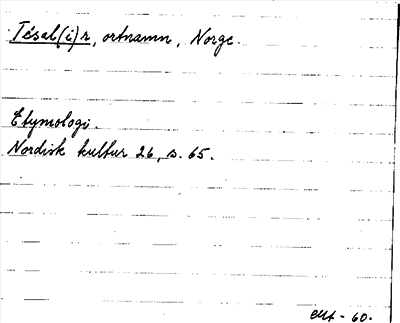 Tésal(i)r, ortnamn, Norge.
Etymologi.
Nordisk kultur 26, s. 65.
- 60.